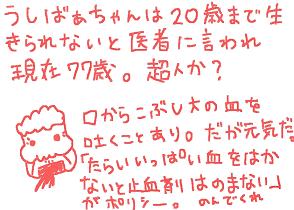 うしばぁちゃんは20歳まで生
きられないと医者に言われ
現在77歳。超人か?
口からこぶし大の血を
吐くことあり。だが元気だ。
「たらいいっぱい血をはか
ないと止血剤はのまない」
がポリシー。のんでくれ